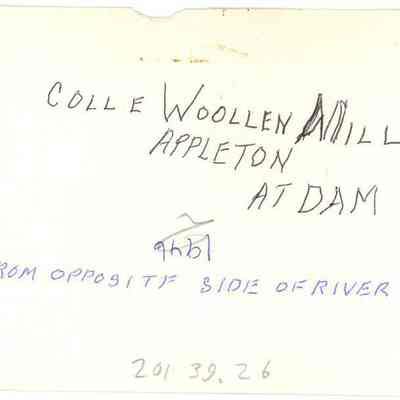 COLLE WOOLLEN MILL
APPLETON
AT DAM
ROM OPPOSITE SIDE OF RIVER
201 39.26